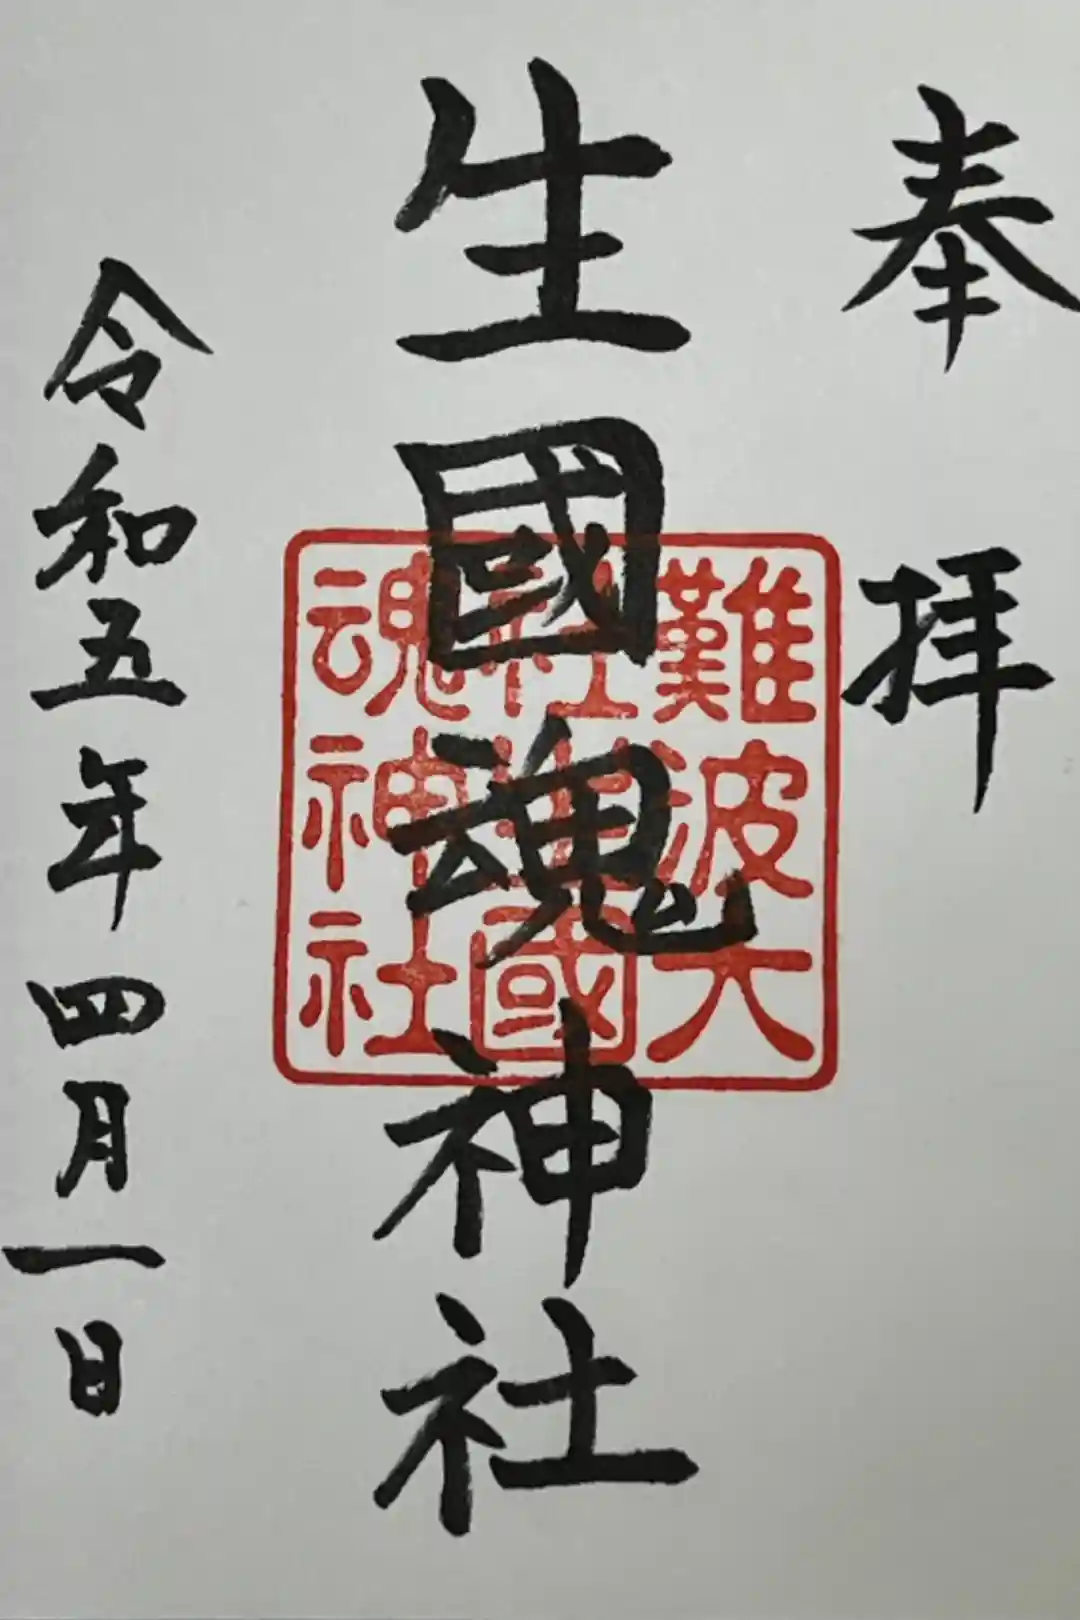 奉拝
生國魂神社
難波大
社生國
魂神社
令和五年四月一日